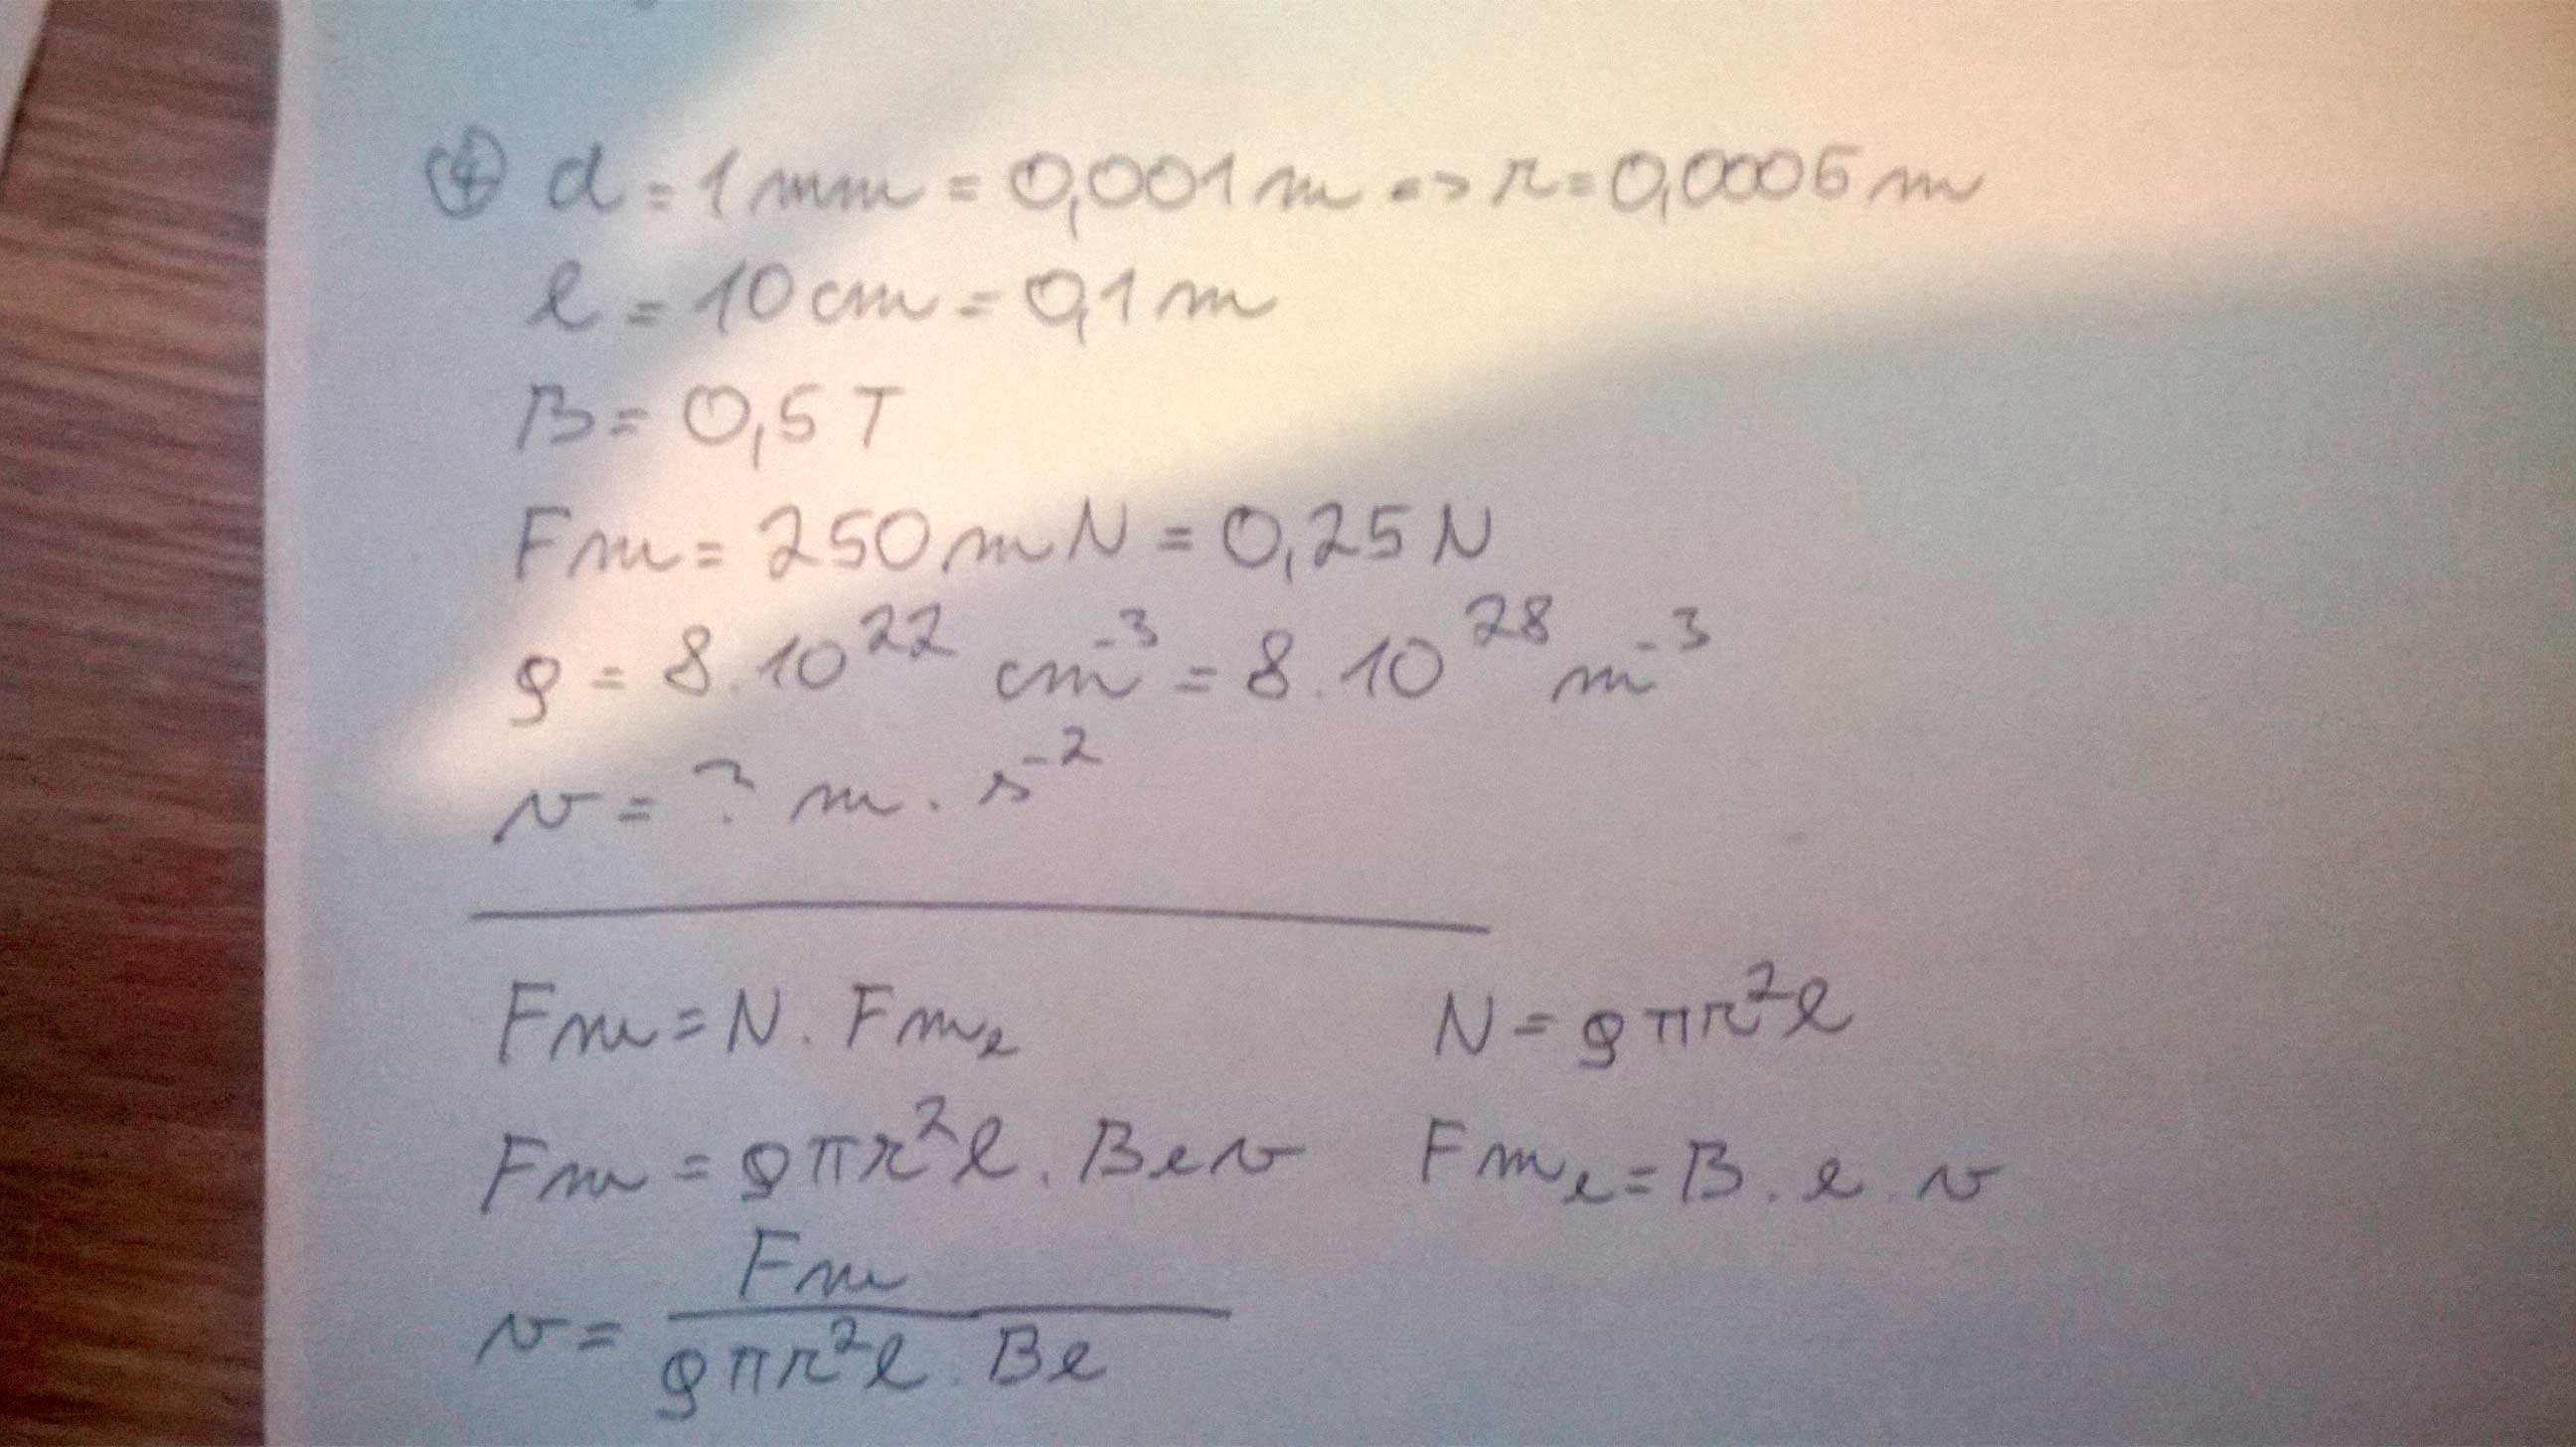 ④ d = 1 mm = 0,001 m => r = 0,0005 m
l = 10 cm = 0,1 m
B = 0,5 T
Fm = 250 mN = 0,25 N
ρ = 8 . 10²² cm⁻³ = 8 . 10²⁸ m⁻³
v = ? m . s⁻²
Fm = N . Fmₑ N = ρπr²l
Fm = ρπr²l . Bev Fmₑ = B . e . v
v = Fm / ρπr²l . Be